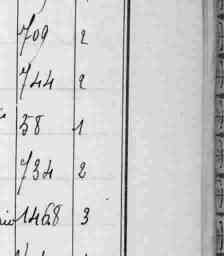 709 2
744 2
58 1
734 2
1468 3